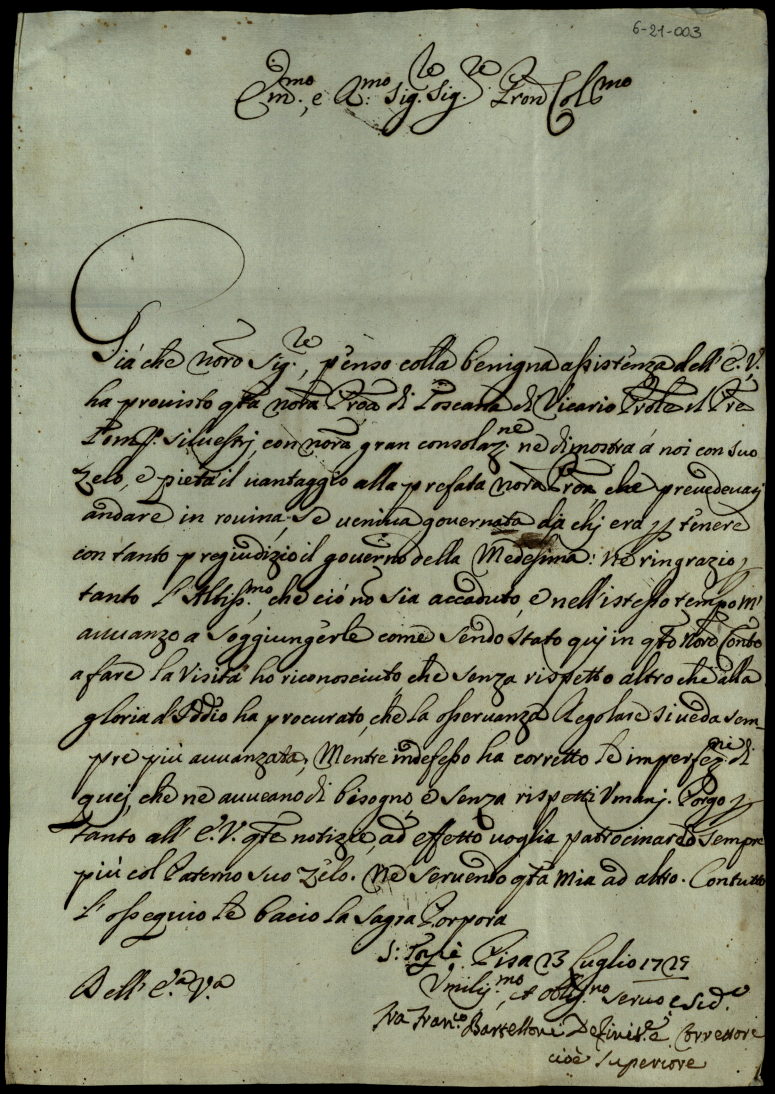 6-21-003
Em.mo, e R.mo Sig.re Sig.re P'ron Col.mo
Già che n'oro Sig.re, p'enso colla benigna assistenza dell' E. V.
ha provisto q'ta nora Proa di Toscana di Vicario Prole il Pre
Silvestrj, con nora gran consolaz.ne ne dimostra à noi con suo
Zelo, e pietà il vantaggio alla prefata nora Proa che prevedevasj
andare in rovina, se veniva governata da chj era p tenere
con tanto pregiudizio il governo della Medesima: Ne ringrazio p
tanto l'Altiss.mo, che ciò no' sia accaduto, e nell'istesso tempo m'
avvanzo a soggiungerle come sendo stato quj in q'to noro Con'to
a fare la Visita ho riconosciuto che senza rispetto altro che alla
gloria d'Iddio ha procurato, che la osservanza Regolare si veda sem-
pre più avvanzata; Mentre indefesso ha corretto le imperfez.ni di
quej, che ne avveano di bisogno e senza rispetti Vmanj. Porgo p
tanto all' E. V. q'te notizie, ad effetto voglia patrocinarlo sempre
più col Paterno suo Zelo. Ne servendo q'ta mia ad altro. Con tutto
l'ossequio le bacio la Sagra Porpora
Pisa 13 Luglio 1729
Dell' E.a V.a
Vmiliss.mo, et obblig.mo servo e
Fra Fran.co Bartelloni Correttore
cioè Superiore